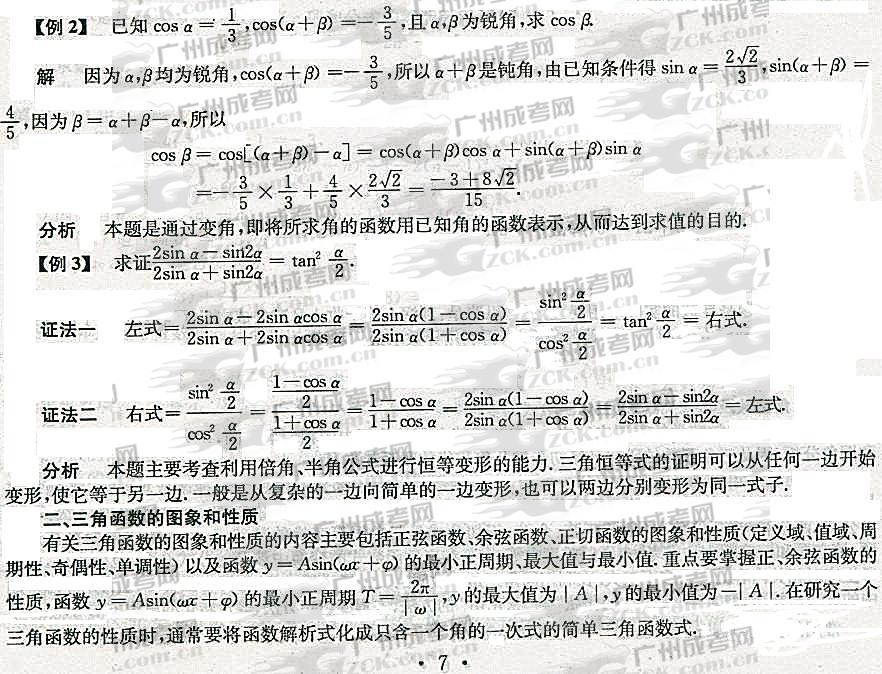 【例2】 已知 cos α = 1/3, cos(α+β) = -3/5, 且 α,β 为锐角, 求 cos β.
解 因为 α,β 均为锐角, cos(α+β) = -3/5, 所以 α+β 是钝角, 由已知条件得 sin α = 2√2/3, sin(α+β) =
4/5, 因为 β = α+β-α, 所以
cos β = cos[(α+β)-α] = cos(α+β)cos α + sin(α+β)sin α
= -3/5 × 1/3 + 4/5 × 2√2/3 = (-3+8√2)/15.
分析 本题是通过变角,即将所求角的函数用已知角的函数表示,从而达到求值的目的.
【例3】 求证 (2sin α - sin2α)/(2sin α + sin2α) = tan² α/2.
证法一 左式 = (2sin α - 2sin αcos α)/(2sin α + 2sin αcos α) = 2sin α(1-cos α)/2sin α(1+cos α) = (sin² α/2)/(cos² α/2) = tan² α/2 = 右式.
证法二 右式 = (sin² α/2)/(cos² α/2) = ((1-cos α)/2)/((1+cos α)/2) = (1-cos α)/(1+cos α) = 2sin α(1-cos α)/2sin α(1+cos α) = (2sin α - sin2α)/(2sin α + sin2α) = 左式.
分析 本题主要考查利用倍角、半角公式进行恒等变形的能力.三角恒等式的证明可以从任何一边开始
变形,使它等于另一边.一般是从复杂的一边向简单的一边变形,也可以两边分别变形为同一式子.
二、三角函数的图象和性质
有关三角函数的图象和性质的内容主要包括正弦函数、余弦函数、正切函数的图象和性质(定义域、值域、周
期性、奇偶性、单调性)以及函数 y = Asin(ωx+φ) 的最小正周期、最大值与最小值.重点要掌握正、余弦函数的
性质,函数 y = Asin(ωx+φ) 的最小正周期 T = 2π/|ω|, y 的最大值为 |A|, y 的最小值为 -|A|. 在研究一个
三角函数的性质时,通常要将函数解析式化成只含一个角的一次式的简单三角函数式.
· 7 ·
广州成考网
GZCK.com.cn